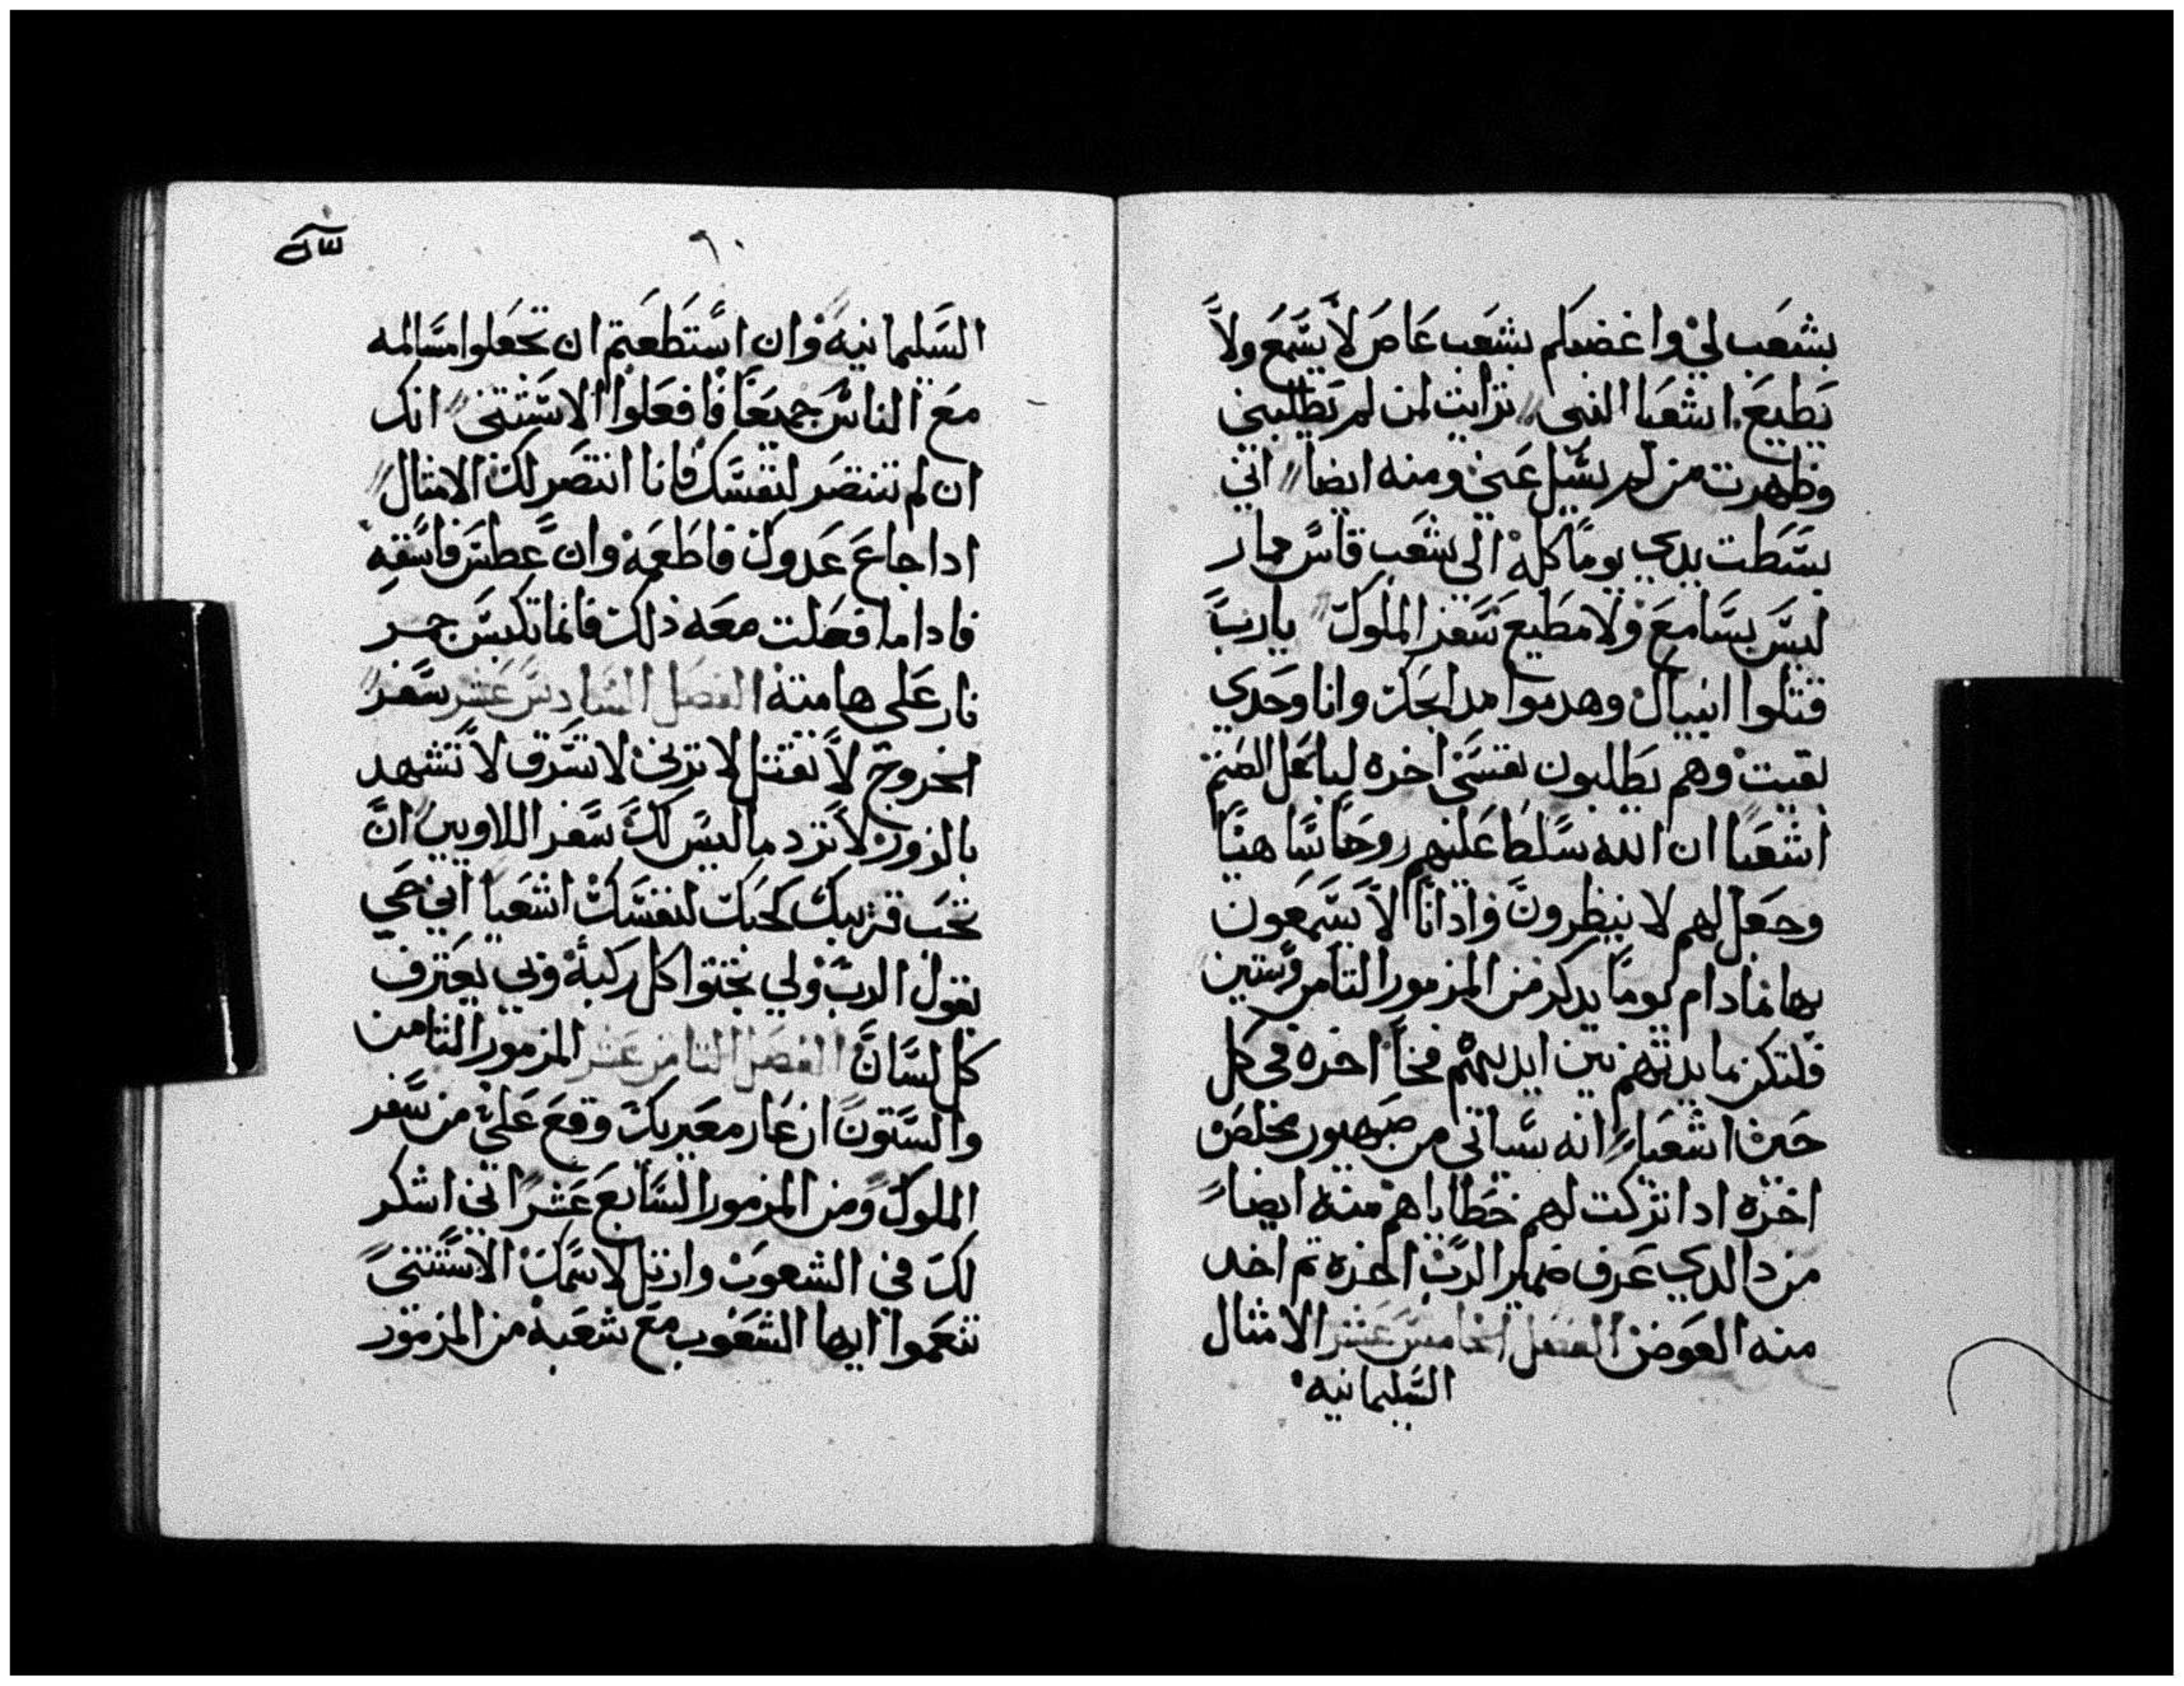 بشعب لي واغضبكم بشعب عاص لا يسمع ولا
يطيع اشعيا النبي تراايت لمن لم يطلبني
وظهرت من لم يسل عني ومنه ايضا اني
بسطت يدي يوما كله الي شعب قاس مار
ليس بسامع ولا مطيع سفر الملوك يارب
قتلوا انبياك وهدموا مدابحك وانا وحدي
بقيت وهم يطلبون نفسي اخره لباعل الصنم
اشعيا ان الله سلط عليهم روحا ساهيا
وجعل لهم لا ينظرون وادانا لا يسمعون
بها مادام يوما يدكر من المزمور التامن وستين
فلتكن مايدتهم بين ايديهم فخا اخره في كل
حين اشعيا انه سياتي من صهيون مخلص
اخره ادا تركت لهم خطاياهم منه ايضا
من دا الدي عرف ضمير الرب اخره تم اخد
منه العوض الفصل الخامس عشر الامثال
السليمانيه
٦٠
السليمانيه وان استطعتم ان تجعلوا مسالمه
مع الناس جميعا فافعلوا الاستتنى انك
ان لم تنتصر لنفسك فانا انتصر لك الامثال
ادا جاع عدوك فاطعمه وان عطش فاسقه
فادا ما فعلت معه ذلك فانما تكبس جمر
نار على هامته الفصل السادس عشر سفر
الخروج لا تقتل لا تزني لا تسرق لا تشهد
بالزور لا ترد ما ليس لك سفر اللاويين ان
تحب قريبك كحبك لنفسك اشعيا اني حي
يقول الرب ولي تجتوا كل ركبة وبي يعترف
كل لسان الفصل التامن عشر المزمور التامن
والستون ان عار معيريك وقع علي من سفر
الملوك ومن المزمور السابع عشر اني اشكر
لك في الشعوب وارتل لاسمك الاستتنى
تنعموا ايها الشعوب مع شعبه من المزمور